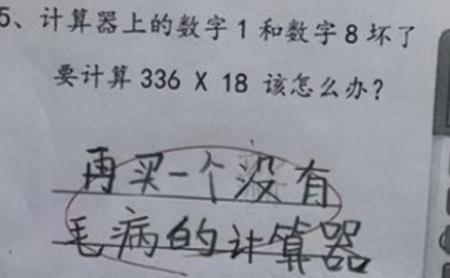 5、计算器上的数字1和数字8坏了
要计算336 X 18 该怎么办?
再买一个没有
毛病的计算器